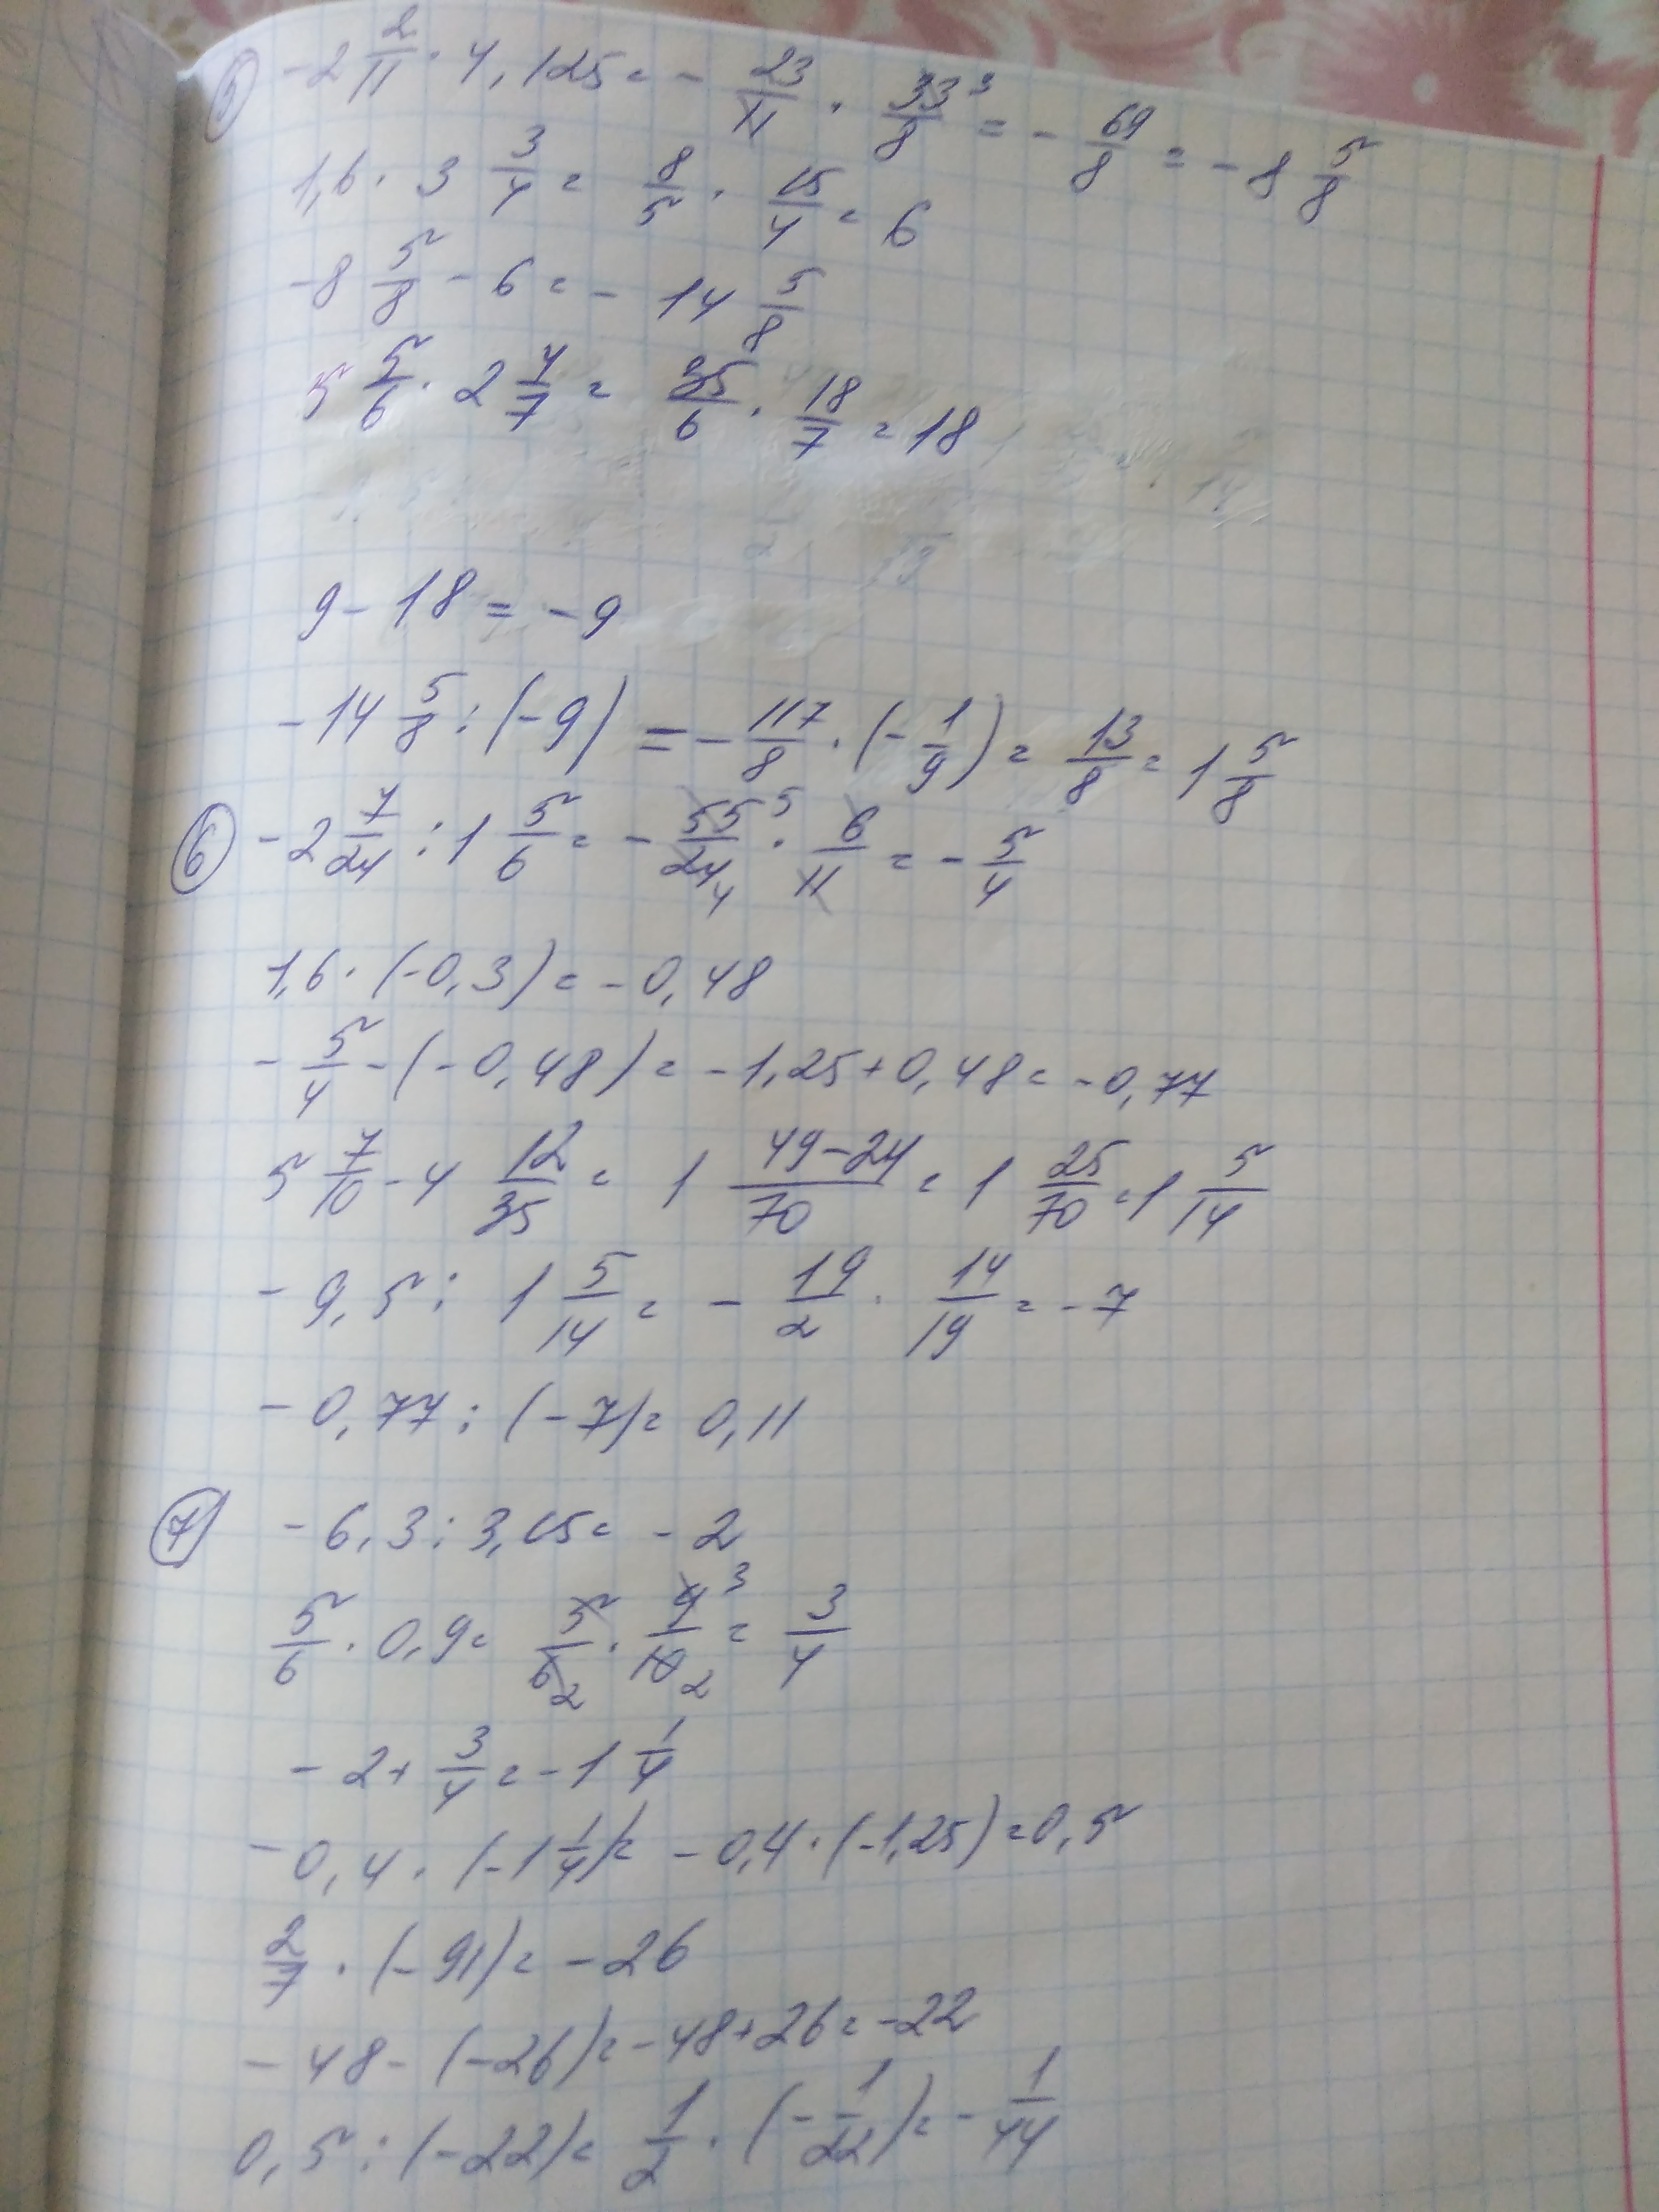 5) -2 2/11 · 4,125 = - 23/11 · 33/8 ³ = - 69/8 = -8 5/8
1,6 · 3 3/4 = 8/5 · 15/4 = 6
-8 5/8 - 6 = - 14 5/8
5 5/6 · 2 4/7 = 35/6 · 18/7 = 18
9 - 18 = -9
-14 5/8 : (-9) = - 117/8 · (- 1/9) = 13/8 = 1 5/8
6) -2 7/24 : 1 5/6 = - 55/24 ⁵ ₄ · 6/11 = - 5/4
1,6 · (-0,3) = -0,48
- 5/4 - (-0,48) = -1,25 + 0,48 = -0,77
5 7/10 - 4 12/35 = 1 (49-24)/70 = 1 25/70 = 1 5/14
- 9,5 : 1 5/14 = - 19/2 · 14/19 = -7
- 0,77 : (-7) = 0,11
7) -6,3 : 3,15 = -2
5/6 · 0,9 = 5/6 ₂ · 9/10 ³ ₂ = 3/4
- 2 + 3/4 = -1 1/4
-0,4 · (-1 1/4) = -0,4 · (-1,25) = 0,5
2/7 · (-91) = -26
-48 - (-26) = -48 + 26 = -22
0,5 : (-22) = 1/2 · (- 1/22) = - 1/44